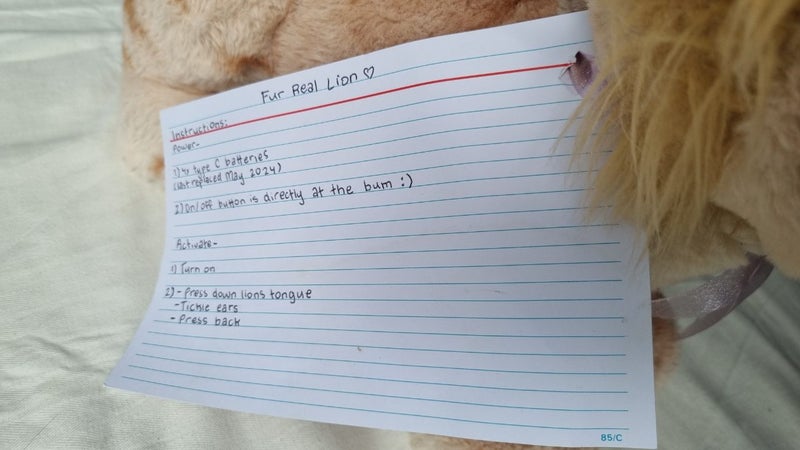 Fur Real Lion ♡
Instructions:
Power-
1) 4x type C batteries
(last replaced May 2024)
2) On/off button is directly at the bum :)
Activate-
1) Turn on
2) - Press down lions tongue
- Tickle ears
- Press back
85/C